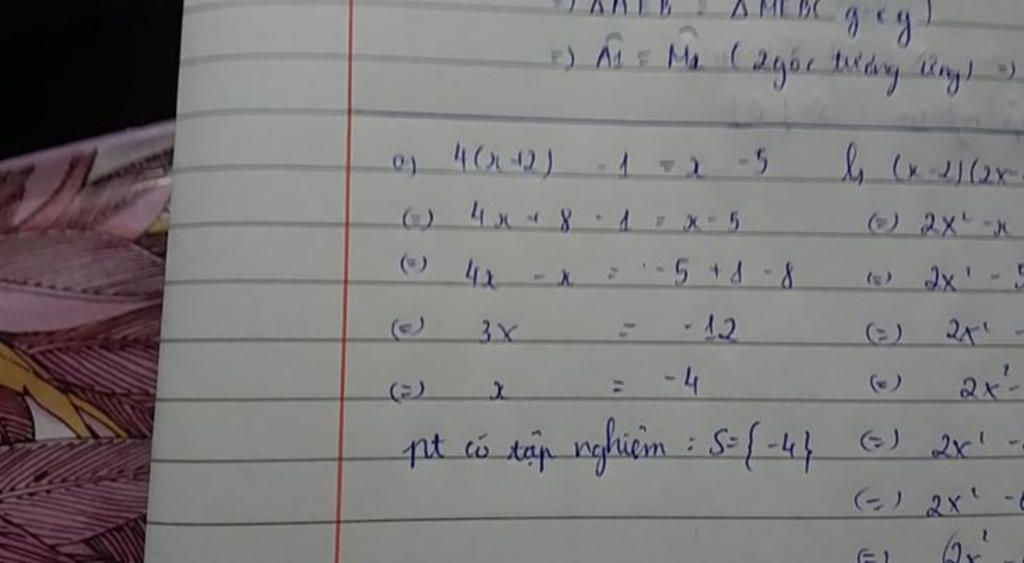 =) Â1 = M̂1 (2 góc tương ứng) =)
a, 4(x+2) - 1 = x - 5
(=) 4x + 8 - 1 = x - 5
(=) 4x - x = -5 + 1 - 8
(=) 3x = -12
(=) x = -4
pt có tập nghiệm : S = {-4}
b, (x-2)(2x-
(=) 2x² - x
(=) 2x² - 5
(=) 2x² -
(=) 2x² -
(=) 2x² -
(=) 2x² -
(=) (2x² -